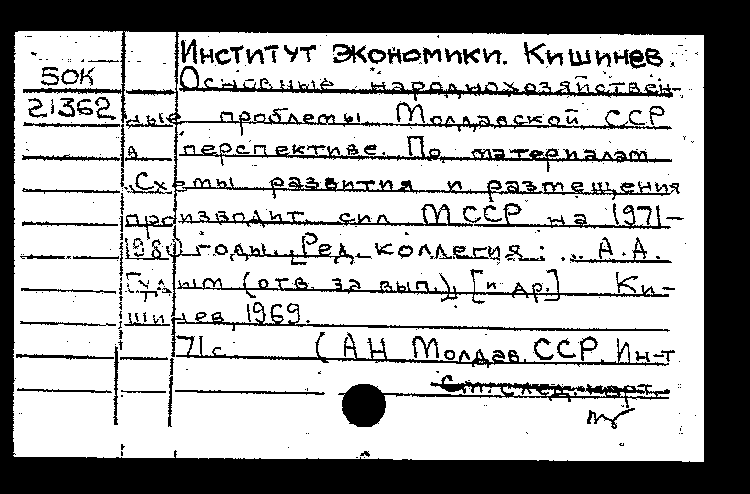 Институт экономики. Кишинев.
БОК
Основные народнохозяйствен-
21362
ные проблемы Молдавской ССР
в перспективе. По материалам
"Схемы развития и размещения
производит. сил МССР на 1971-
1980 годы. [Ред. коллегия: ... А.А.
Гудым (отв. за вып.), [и др.] Ки-
шинев, 1969.
71 с. (АН Молдав. ССР. Ин-т
См. след. карт.